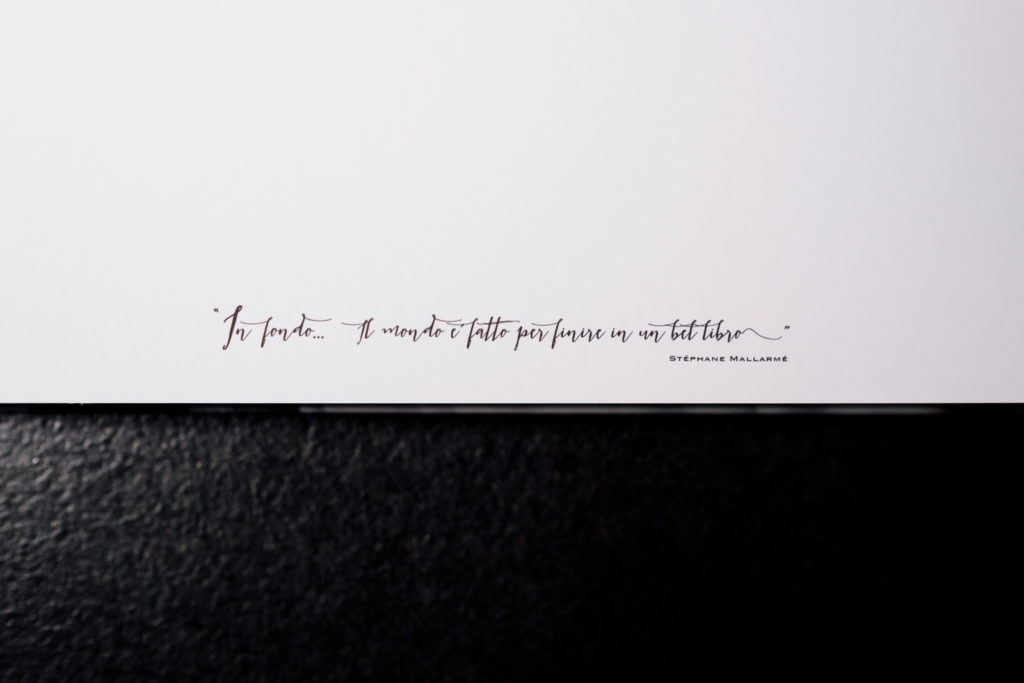 "In fondo... Il mondo è fatto per finire in un bel libro"
Stéphane Mallarmé